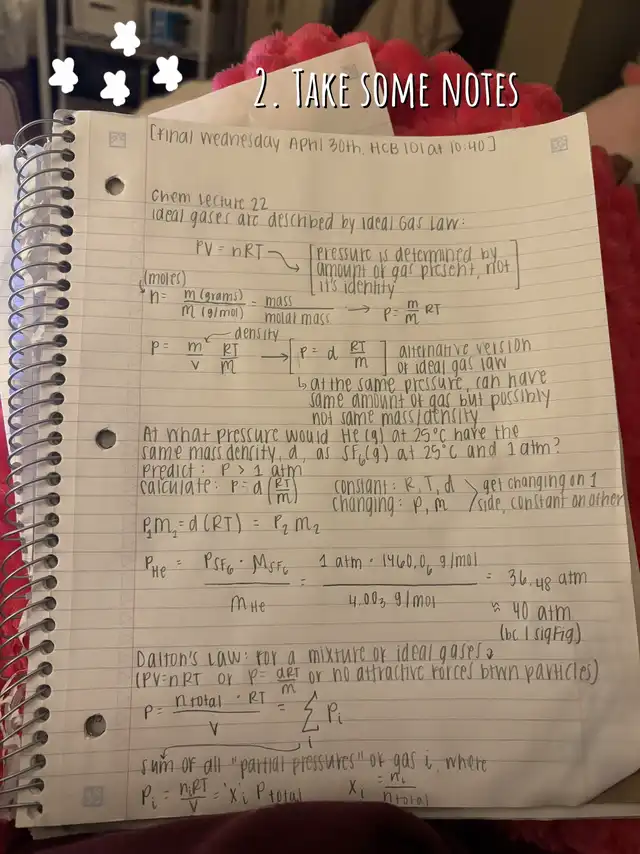 2. Take some notes
[Final Wednesday April 30th, HCB 101 at 10:40]
Chem Lecture 22
ideal gases are described by Ideal Gas Law:
PV = nRT → [pressure is determined by
amount of gas present, not
it's identity]
(moles)
n = m(grams) / m(g/mol) = mass / molar mass → P = m/m RT
density
P = m/V RT/m → [P = d RT/m] alternative version
of ideal gas law
↳ at the same pressure, can have
same amount of gas but possibly
not same mass/density
At what pressure would He(g) at 25°C have the
same mass density, d, as SF6(g) at 25°C and 1 atm?
Predict: P > 1 atm
calculate: P = d(RT/m) constant: R, T, d > get changing on 1
changing: P, m side, constant on other
P1m1 = d(RT) = P2m2
PHe = PSF6 · MSF6 / mHe = 1 atm · 1460.06 g/mol / 4.003 g/mol = 36.48 atm
≈ 40 atm
(bc 1 sigfig)
Dalton's Law: For a mixture of ideal gases,
(PV=nRT or P= dRT/m or no attractive forces btwn particles)
P = ntotal · RT / V = Σ Pi
i
sum of all "partial pressures" of gas i, where
Pi = niRT/V = Xi Ptotal Xi = ni/ntotal